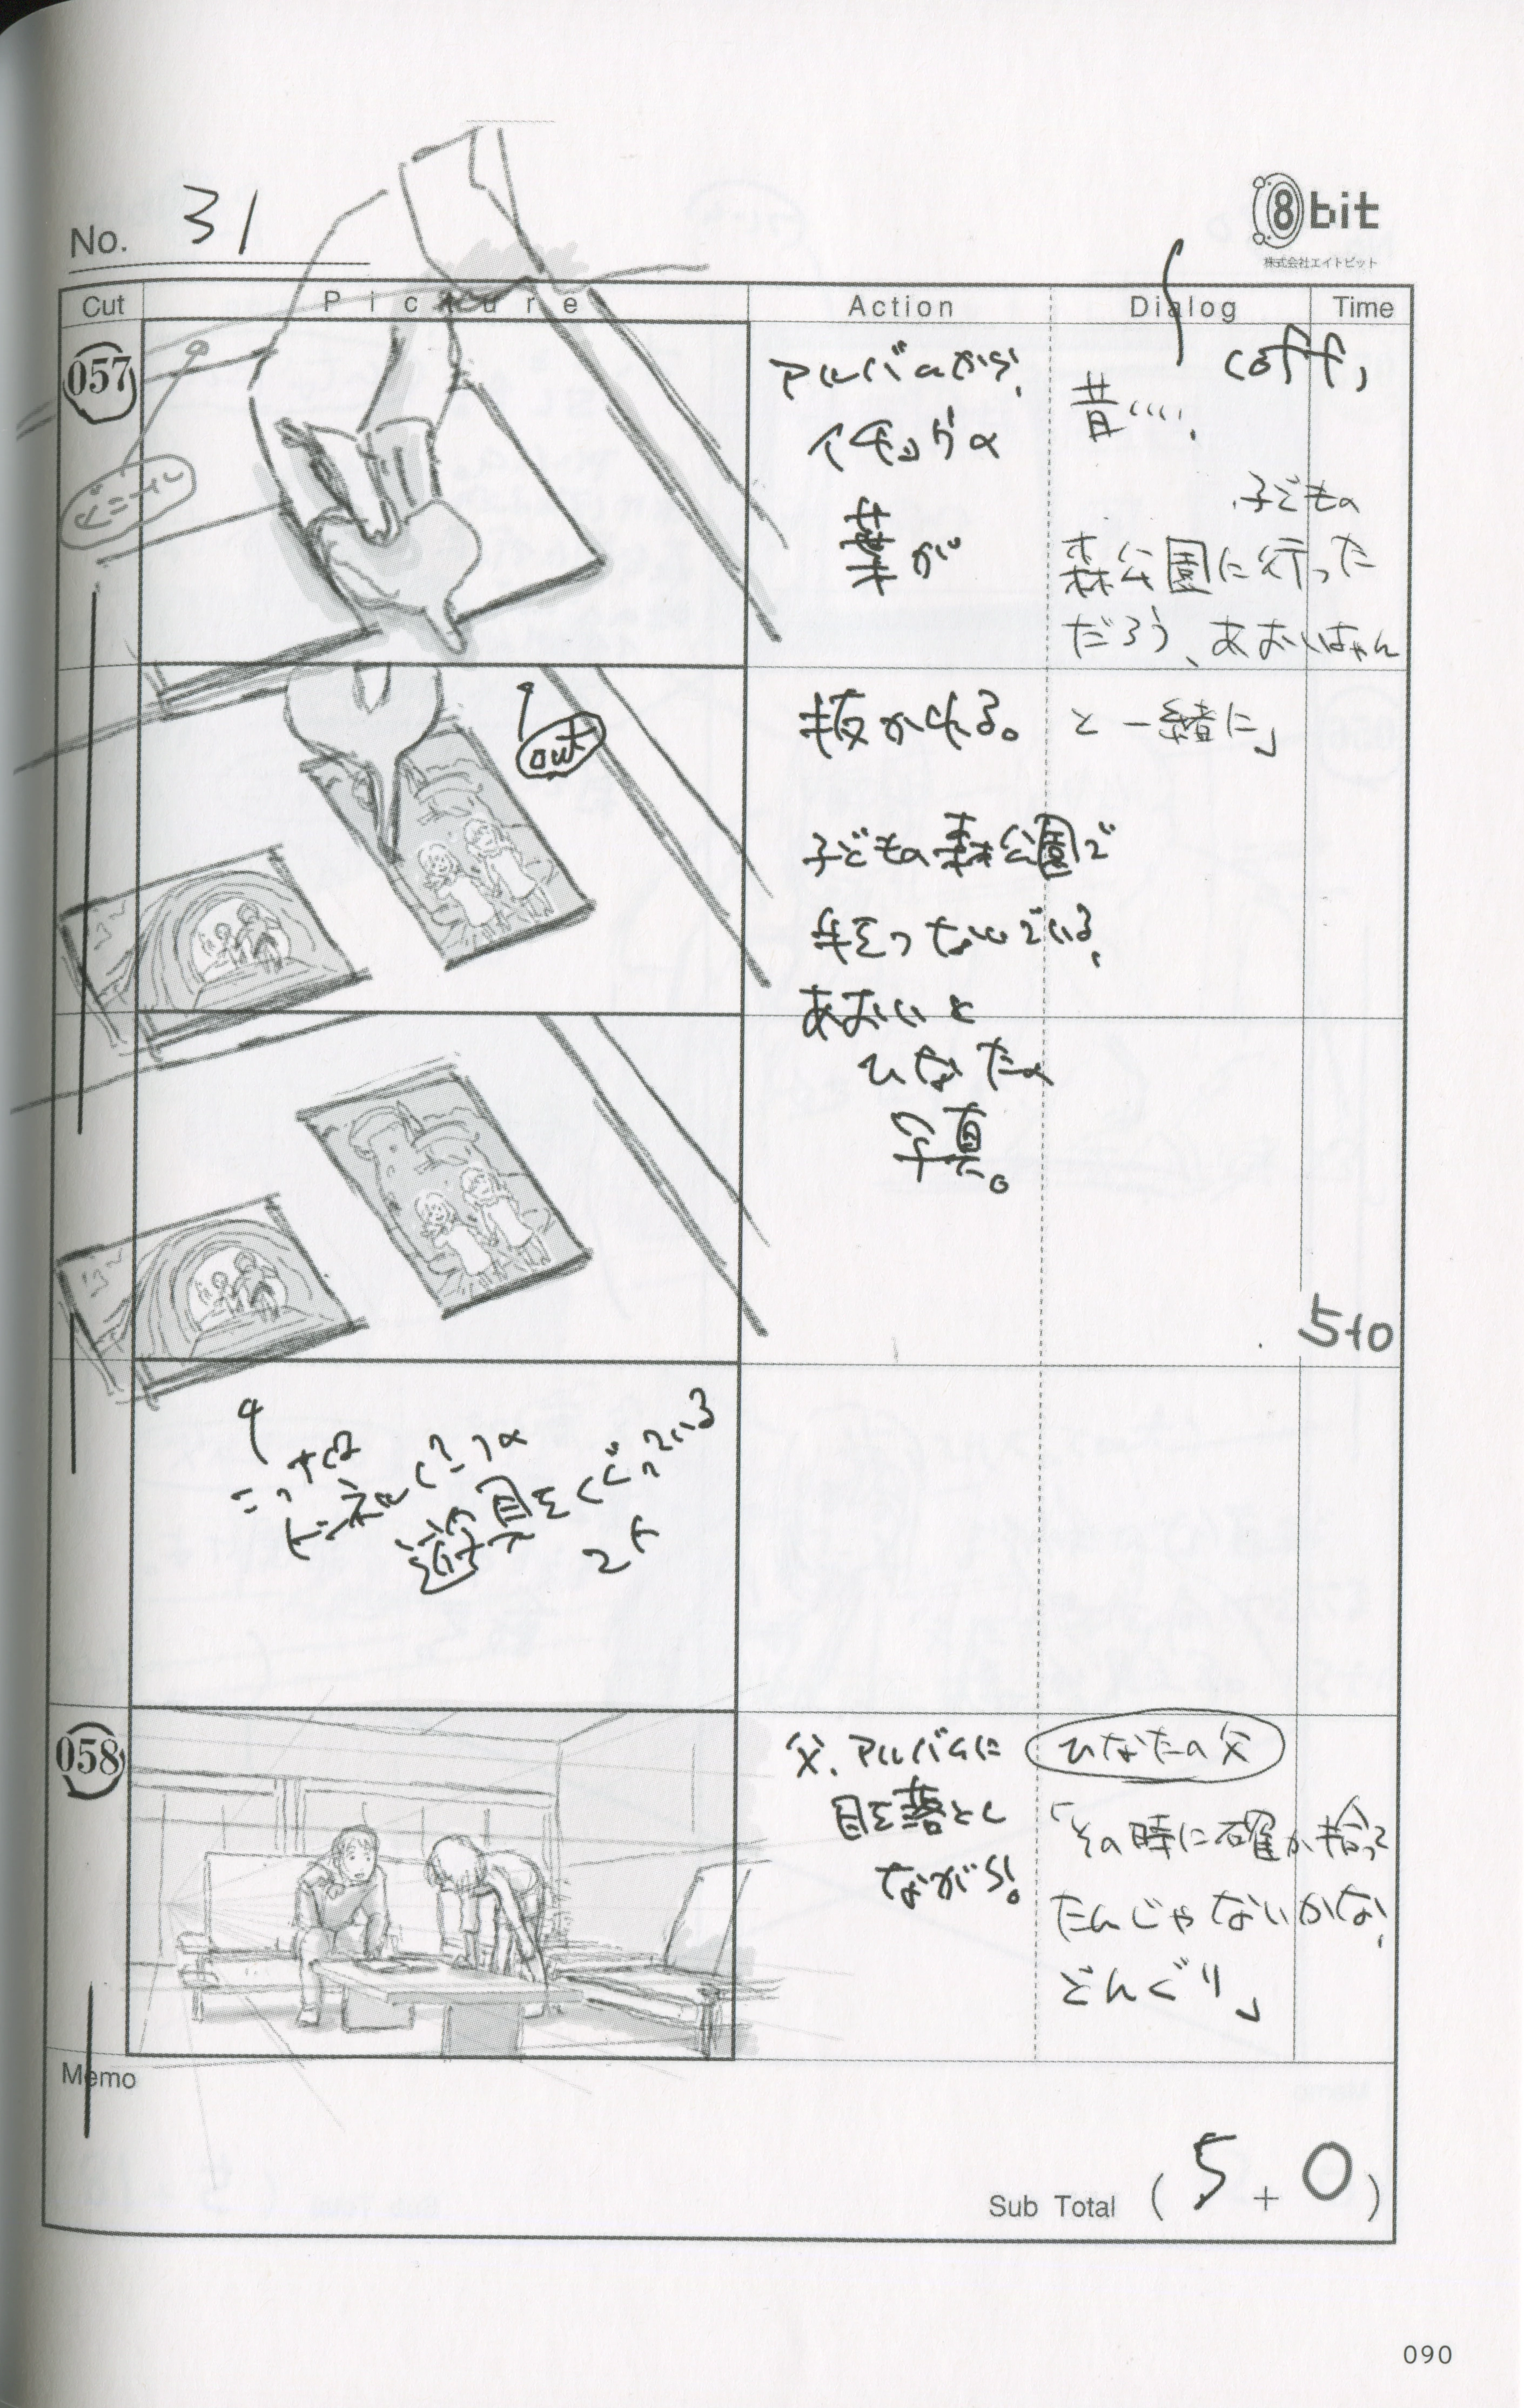 No. 31
8bit
株式会社エイトビット
Cut Picture Action Dialog Time
057
ビニール
アルバムから、
イチョウの
葉が
(off)
昔…、
子どもの
森公園に行った
だろう、あおいちゃん
out
抜かれる。
と一緒に」
子どもの森公園で
手をつないでいる、
あおいと
ひなたの
写真。
5+0
こっちは
トンネルぐらいの
遊具をくぐっている
2人
058
父、アルバムに
目を落とし
ながら、
ひなたの父
「その時に確か拾って
たんじゃないかな、
どんぐり」
Memo
Sub Total ( 5 + 0 )
090